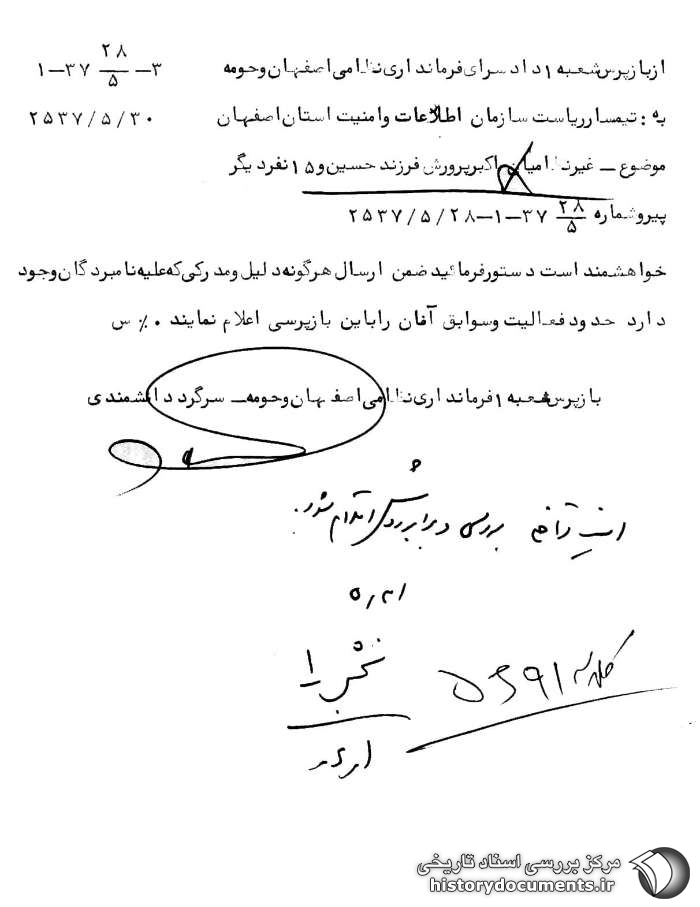 از بازپرس شعبه ۱ دادسرای فرمانداری نظامی اصفهان و حومه ۳ــ ۲۸/۵ ۳۷ــ۱
به : تیمسار ریاست سازمان اطلاعات وامنیت استان اصفهان ۲۵۳۷/۵/۳۰
موضوع ــ غیرنظامیان اکبر پرورش فرزند حسین و ۱۵ نفر دیگر
پیرو شماره ۲۸/۵ ۳۷ــ۱ــ۲۵۳۷/۵/۲۸
خواهشمند است دستور فرمائید ضمن ارسال هرگونه دلیل و مدرکی که علیه نامبردگان وجود
دارد حدود فعالیت و سوابق آنان را باین بازپرسی اعلام نمایند ٪۰ س
بازپرس شعبه ۱ فرمانداری نظامی اصفهان و حومه ــ سرگرد دانشمندی
بررسی و برابر روش اقدام شود.
بخش ۱
کلاسه
مرکز بررسی اسناد تاریخی
historydocuments.ir